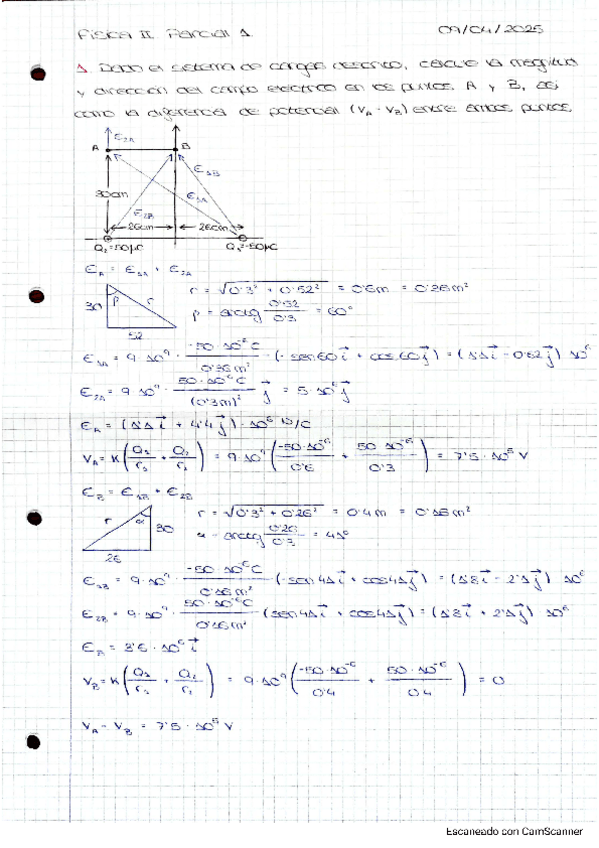 Física II. Parcial 1 09/04/2025
1. Dado el sistema de cargas descrito, calcule la magnitud
y dirección del campo eléctrico en los puntos A y B, así
como la diferencia de potencial (VA - VB) entre ambos puntos.
E2A
A B
E1B
30cm E1A
E2B
26cm 26cm
Q2=50μC Q1=-50μC
EA = E1A + E2A
30 β r r = √0'3² + 0'52² = 0'6m = 0'36m²
β = arctg 0'52/0'3 = 60°
52
E1A = 9·10⁹ · -50·10⁻⁶C/0'36m² (-sen60i + cos60j) = (1'1i - 0'62j) 10⁶
E2A = 9·10⁹ · 50·10⁻⁶C/(0'3m)² j = 5·10⁶j
EA = (1'1i + 4'4j)·10⁶ N/C
VA = K(Q1/r1 + Q2/r2) = 9·10⁹(-50·10⁻⁶/0'6 + 50·10⁻⁶/0'3) = 7'5·10⁵ V
EB = E1B + E2B
r α 30 r = √0'3² + 0'26² = 0'4m = 0'16m²
α = arctg 0'26/0'3 = 41°
26
E1B = 9·10⁹ · -50·10⁻⁶C/0'16m² (-sen41i + cos41j) = (1'8i - 2'1j) 10⁶
E2B = 9·10⁹ · 50·10⁻⁶C/0'16m² (sen41i + cos41j) = (1'8i + 2'1j) 10⁶
EB = 3'6·10⁶ i
VB = K(Q1/r1 + Q2/r2) = 9·10⁹(-50·10⁻⁶/0'4 + 50·10⁻⁶/0'4) = 0
VA - VB = 7'5·10⁵ V
Escaneado con CamScanner